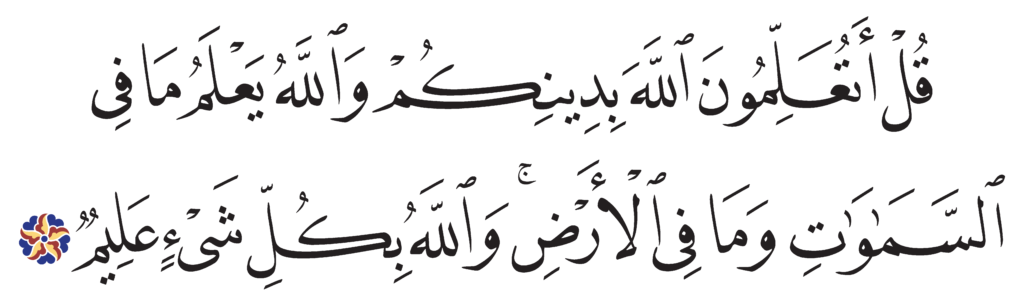 قُلْ أَتُعَلِّمُونَ ٱللَّهَ بِدِينِكُمْ وَٱللَّهُ يَعْلَمُ مَا فِى
ٱلسَّمَـٰوَٰتِ وَمَا فِى ٱلْأَرْضِ ۚ وَٱللَّهُ بِكُلِّ شَىْءٍ عَلِيمٌ